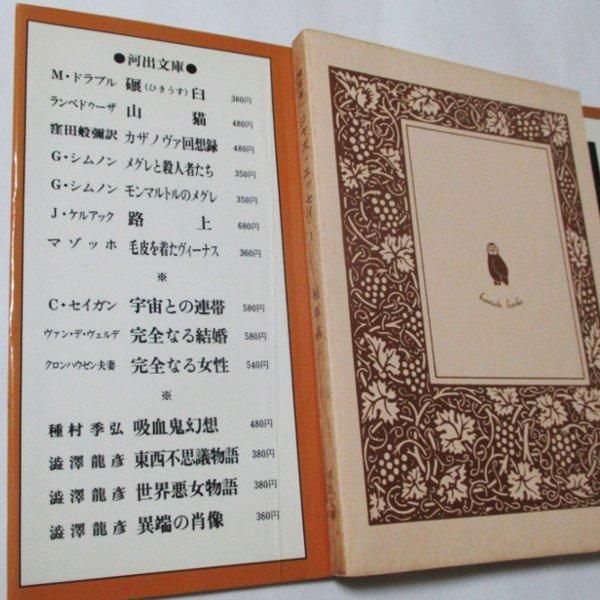 ●河出文庫●
M・ドラブル 碾(ひきうす)臼 380円
ランペドゥーザ 山猫 480円
窪田般彌訳 カザノヴァ回想録 480円
G・シムノン メグレと殺人者たち 350円
G・シムノン モンマルトルのメグレ 350円
J・ケルアック 路上 680円
マゾッホ 毛皮を着たヴィーナス 360円
※
C・セイガン 宇宙との連帯 580円
ヴァン・デ・ヴェルデ 完全なる結婚 580円
クロンハウゼン夫妻 完全なる女性 540円
※
種村季弘 吸血鬼幻想 480円
澁澤龍彦 東西不思議物語 380円
澁澤龍彦 世界悪女物語 380円
澁澤龍彦 異端の肖像 360円
ジャズ・エッセイ1 植草甚一
河出文庫
Kawade bunko